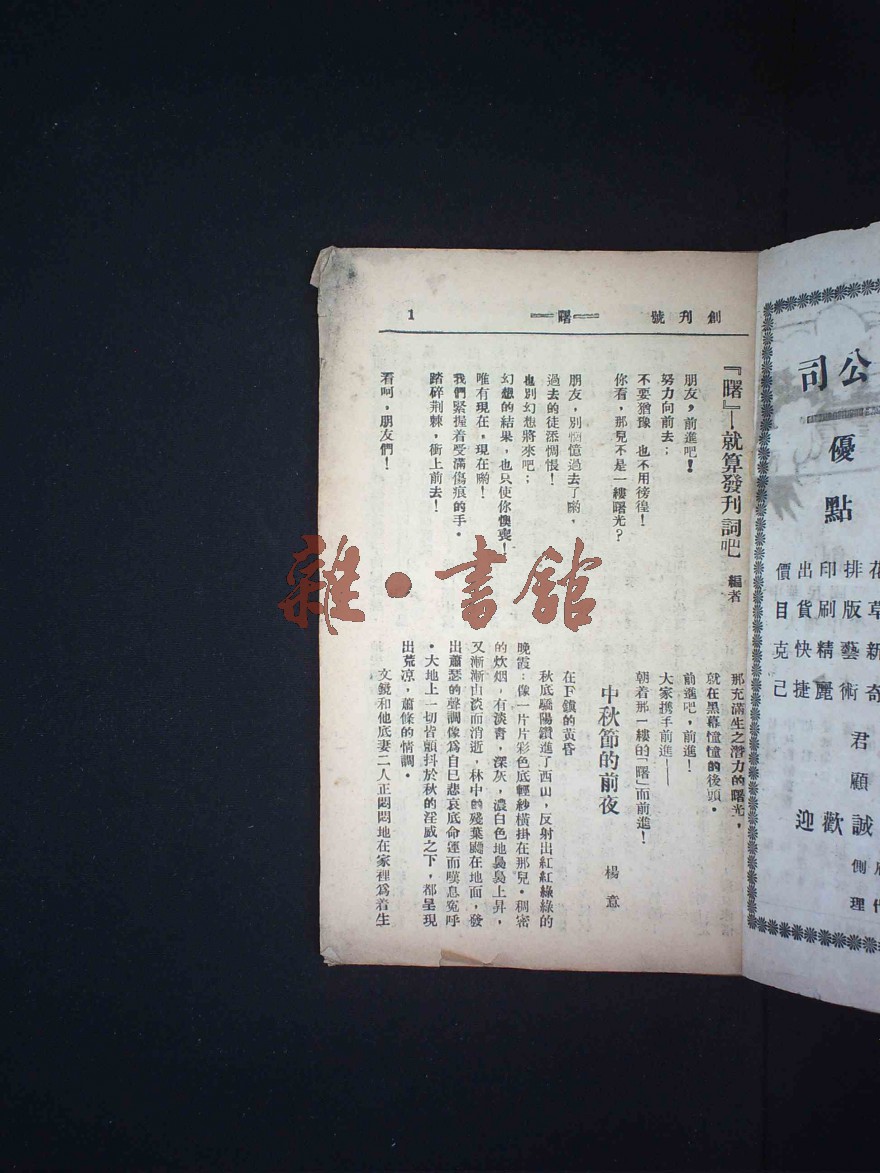 創刊號 ══曙══ 1
『曙』—就算發刊詞吧 編者
朋友，前進吧！
努力向前去；
不要猶豫 也不用徬徨！
你看，那兒不是一縷曙光？
朋友，別憶過去了喲，
過去的徒添惆悵！
也別幻想將來吧；
幻想的結果，也只使你懊喪！
唯有現在，現在喲！
我們緊握着受滿傷痕的手，
踏碎荆棘，衝上前去！
看呵，朋友們！
那充滿生之潛力的曙光，
就在黑幕憧憧的後頭。
前進吧，前進！
大家攜手前進——
朝着那一縷的「曙」而前進！
中秋節的前夜 楊意
在F鎮的黃昏
秋底驕陽鑽進了西山，反射出紅紅綠綠的
晚霞；像一片片彩色底輕紗橫掛在那兒。稠密
的炊烟，有淡青，深灰，濃白色地裊裊上昇，
又漸漸由淡而消逝，林中的殘葉飃在地面，發
出蕭瑟的聲調像爲自已悲哀底命運而嘆息寃呼
。大地上一切皆顫抖於秋的淫威之下，都呈現
出荒凉，蕭條的情調。
文鏡和他底妻二人正悶悶地在家裡爲着生
公司
優
點
花草新奇
排版藝術
印刷精麗
出貨快捷
價目克己
君
顧
誠
歡
迎
側
理
雜·書館